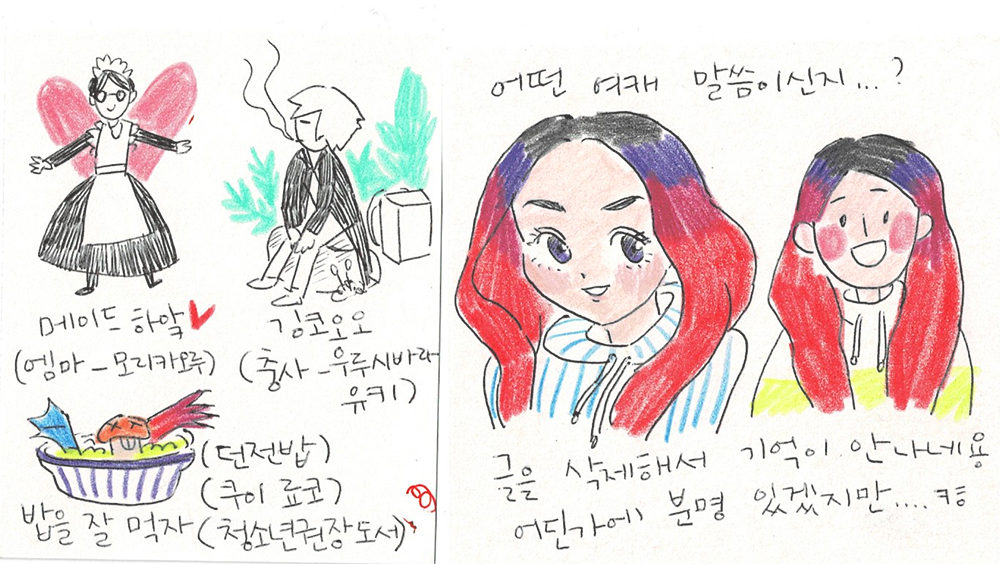 메이드 하악♥
(엠마 - 모리카오루)
깅코오오
(충사 - 우루시바라
유키)
(던전밥)
(쿠이 료코)
밥을 잘 먹자 (청소년권장도서)
어떤 여캐 말씀이신지...?
글을 삭제해서 기억이 안나네용
어딘가에 분명 있겠지만.... ㅋㅎ